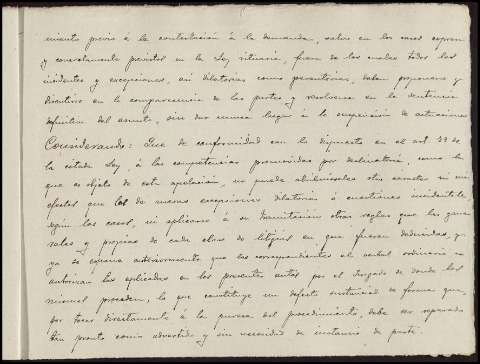 miento previo á la contestación á la demanda, salvo en los casos expresa
y concretamente previstos en la Ley rituaria, fuera de los cuales todos los
incidentes y excepciones, así dilatorias como perentorias, deben proponerse y
discutirse en la comparecencia de las partes y resolverse en la sentencia
definitiva del asunto, sin dar nunca lugar á la suspensión de actuaciones
Considerando: Que de conformidad con lo dispuesto en el art
la citada Ley, á las competencias promovidas por declinatoria, como la
que es objeto de esta apelación, no puede atribuírseles otro carácter ni mas
efectos que los de meras excepciones dilatorias ó cuestiones incidentales
según los casos, ni aplicarse á su tramitación otras reglas que las gene
rales y propias de cada clase de litigios en que fueran deducidas, y
ya se equivoca que las correspondientes al verbal ordinario
autorizan las aplicadas en los presentes autos por el Juzgado de donde los
mismos proceden, lo que constituye un defecto sustancial de forma que,
por tocar directamente á la pureza del procedimiento, debe ser reparado
tan pronto como advertido y sin necesidad de instancia de parte.